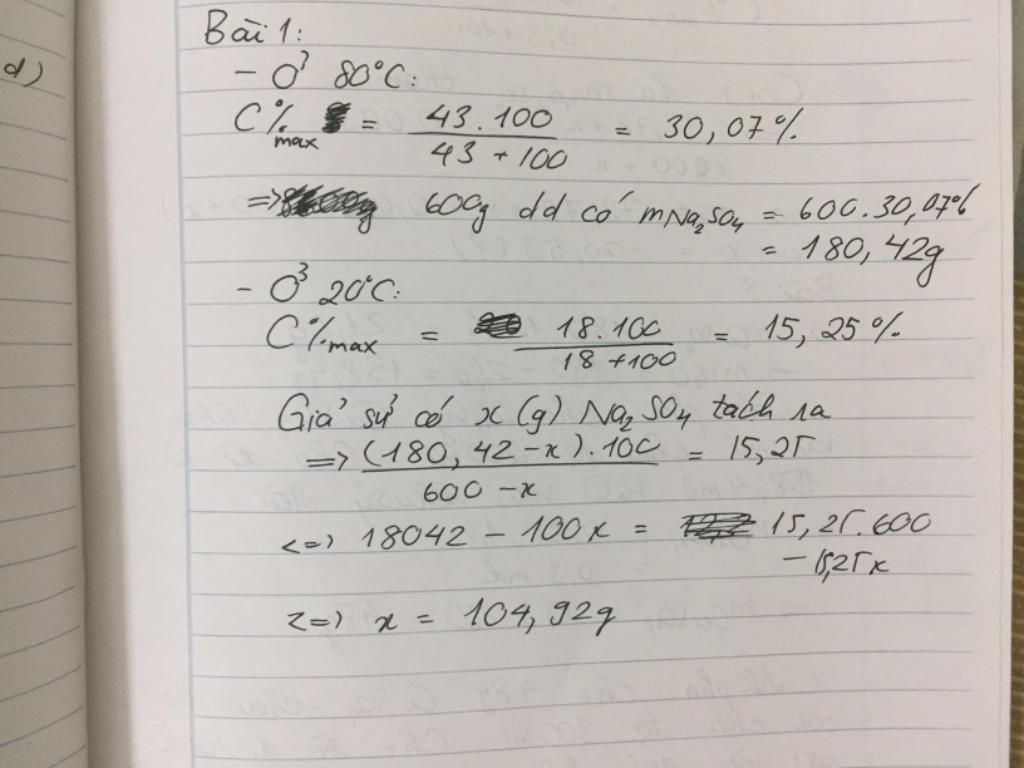 d)
Bài 1:
- Ở 80°C:
C%max = 43.100 / 43 + 100 = 30,07%
=> 600g dd có mNa2SO4 = 600.30,07%
= 180,42g
- Ở 20°C:
C%max = 18.100 / 18 + 100 = 15,25%
Giả sử có x (g) Na2SO4 tách ra
=> (180,42 - x).100 / 600 - x = 15,25
<=> 18042 - 100x = 15,25.600
- 15,25x
<=> x = 104,92g